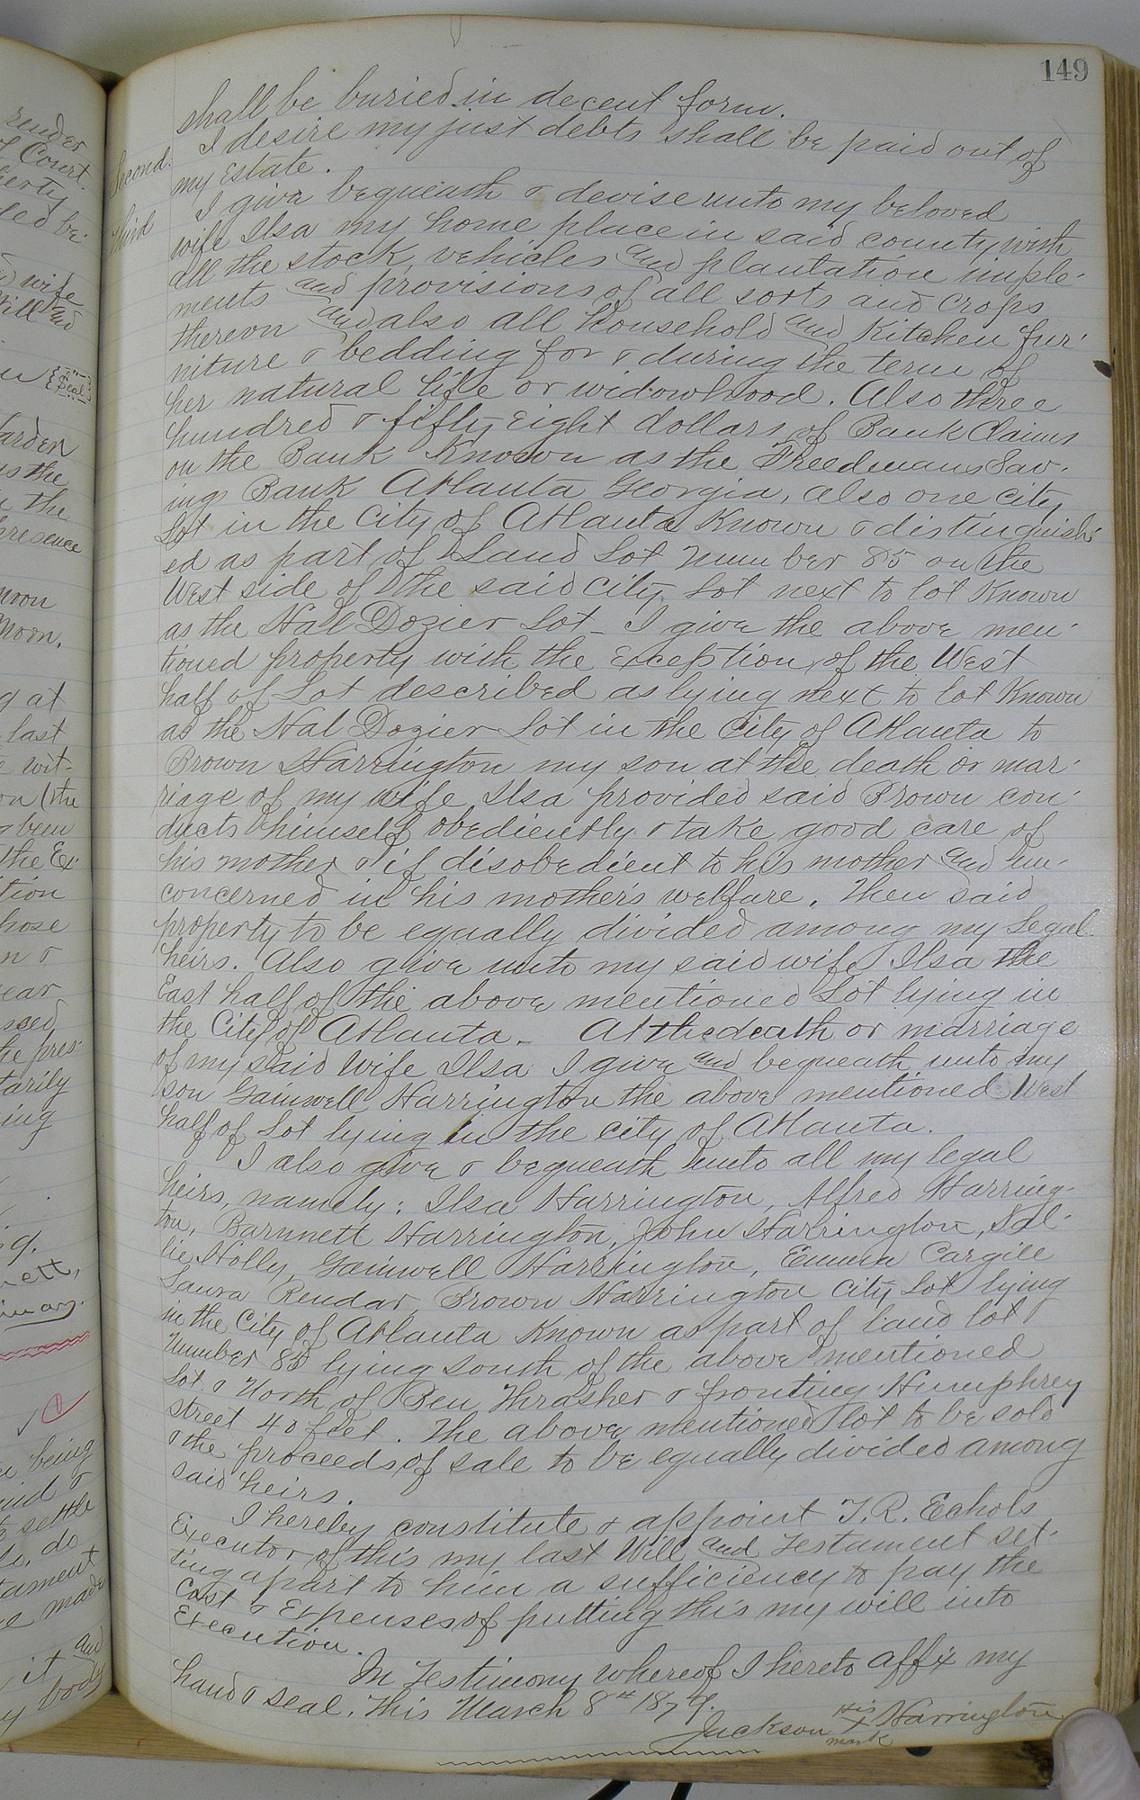 149
shall be buried in decent form.
Second. I desire my just debts shall be paid out of
my Estate.
Third I give bequeath & devise unto my beloved
wife Ilsa my home place in said county with
all the stock, vehicles and plantation imple-
ments and provisions of all sorts and crops
thereon and also all household and Kitchen fur-
niture & bedding for & during the term of
her natural life or widowhood. Also three
hundred & fifty eight dollars of Bank Claims
on the Bank Known as the Freedmans Sav-
ings Bank Atlanta Georgia, also one city
Lot in the City of Atlanta Known & distinguish-
ed as part of Land Lot Number 85 on the
West side of the said city Lot next to lot Known
as the Hall Dozier Lot - I give the above men-
tioned property with the exception of the West
half of Lot described as lying next to lot Known
as the Hal Dozier Lot in the City of Atlanta to
Brown Harrington my son at the death or mar-
riage of my wife Ilsa provided said Brown con-
ducts himself obediently & take good care of
his mother & if disobedient to his mother and un-
concerned in his mother's welfare, Then said
property to be equally divided among my Legal
heirs. Also give unto my said wife Ilsa the
East half of the above mentioned Lot lying in
the City of Atlanta. At the death or marriage
of my said Wife Ilsa I give and bequeath unto my
son Gainwell Harrington the above mentioned West
half of Lot lying in the city of Atlanta.
I also give & bequeath unto all my legal
heirs, namely: Ilsa Harrington, Alfred Harring-
ton, Barnnett Harrington, John Harrington, Sal-
lie Holly, Gainwell Harrington, Emma Cargile
Laura Rendar, Brown Harrington City Lot lying
in the City of Atlanta Known as part of land lot
Number 85 lying south of the above mentioned
Lot & North of Ben Thrasher & fronting Humphrey
street 40 feet. The above mentioned lot to be sold
& the proceeds of sale to be equally divided among
said heirs.
I hereby constitute & appoint T. R. Echols
Executor of this my last Will and Testament set-
ting apart to him a sufficiency to pay the
Cost & Expenses of putting this my will into
Execution.
In Testimony whereof I hereto affix my
hand & seal. This March 8th 1879.
Jackson His X mark Harrington